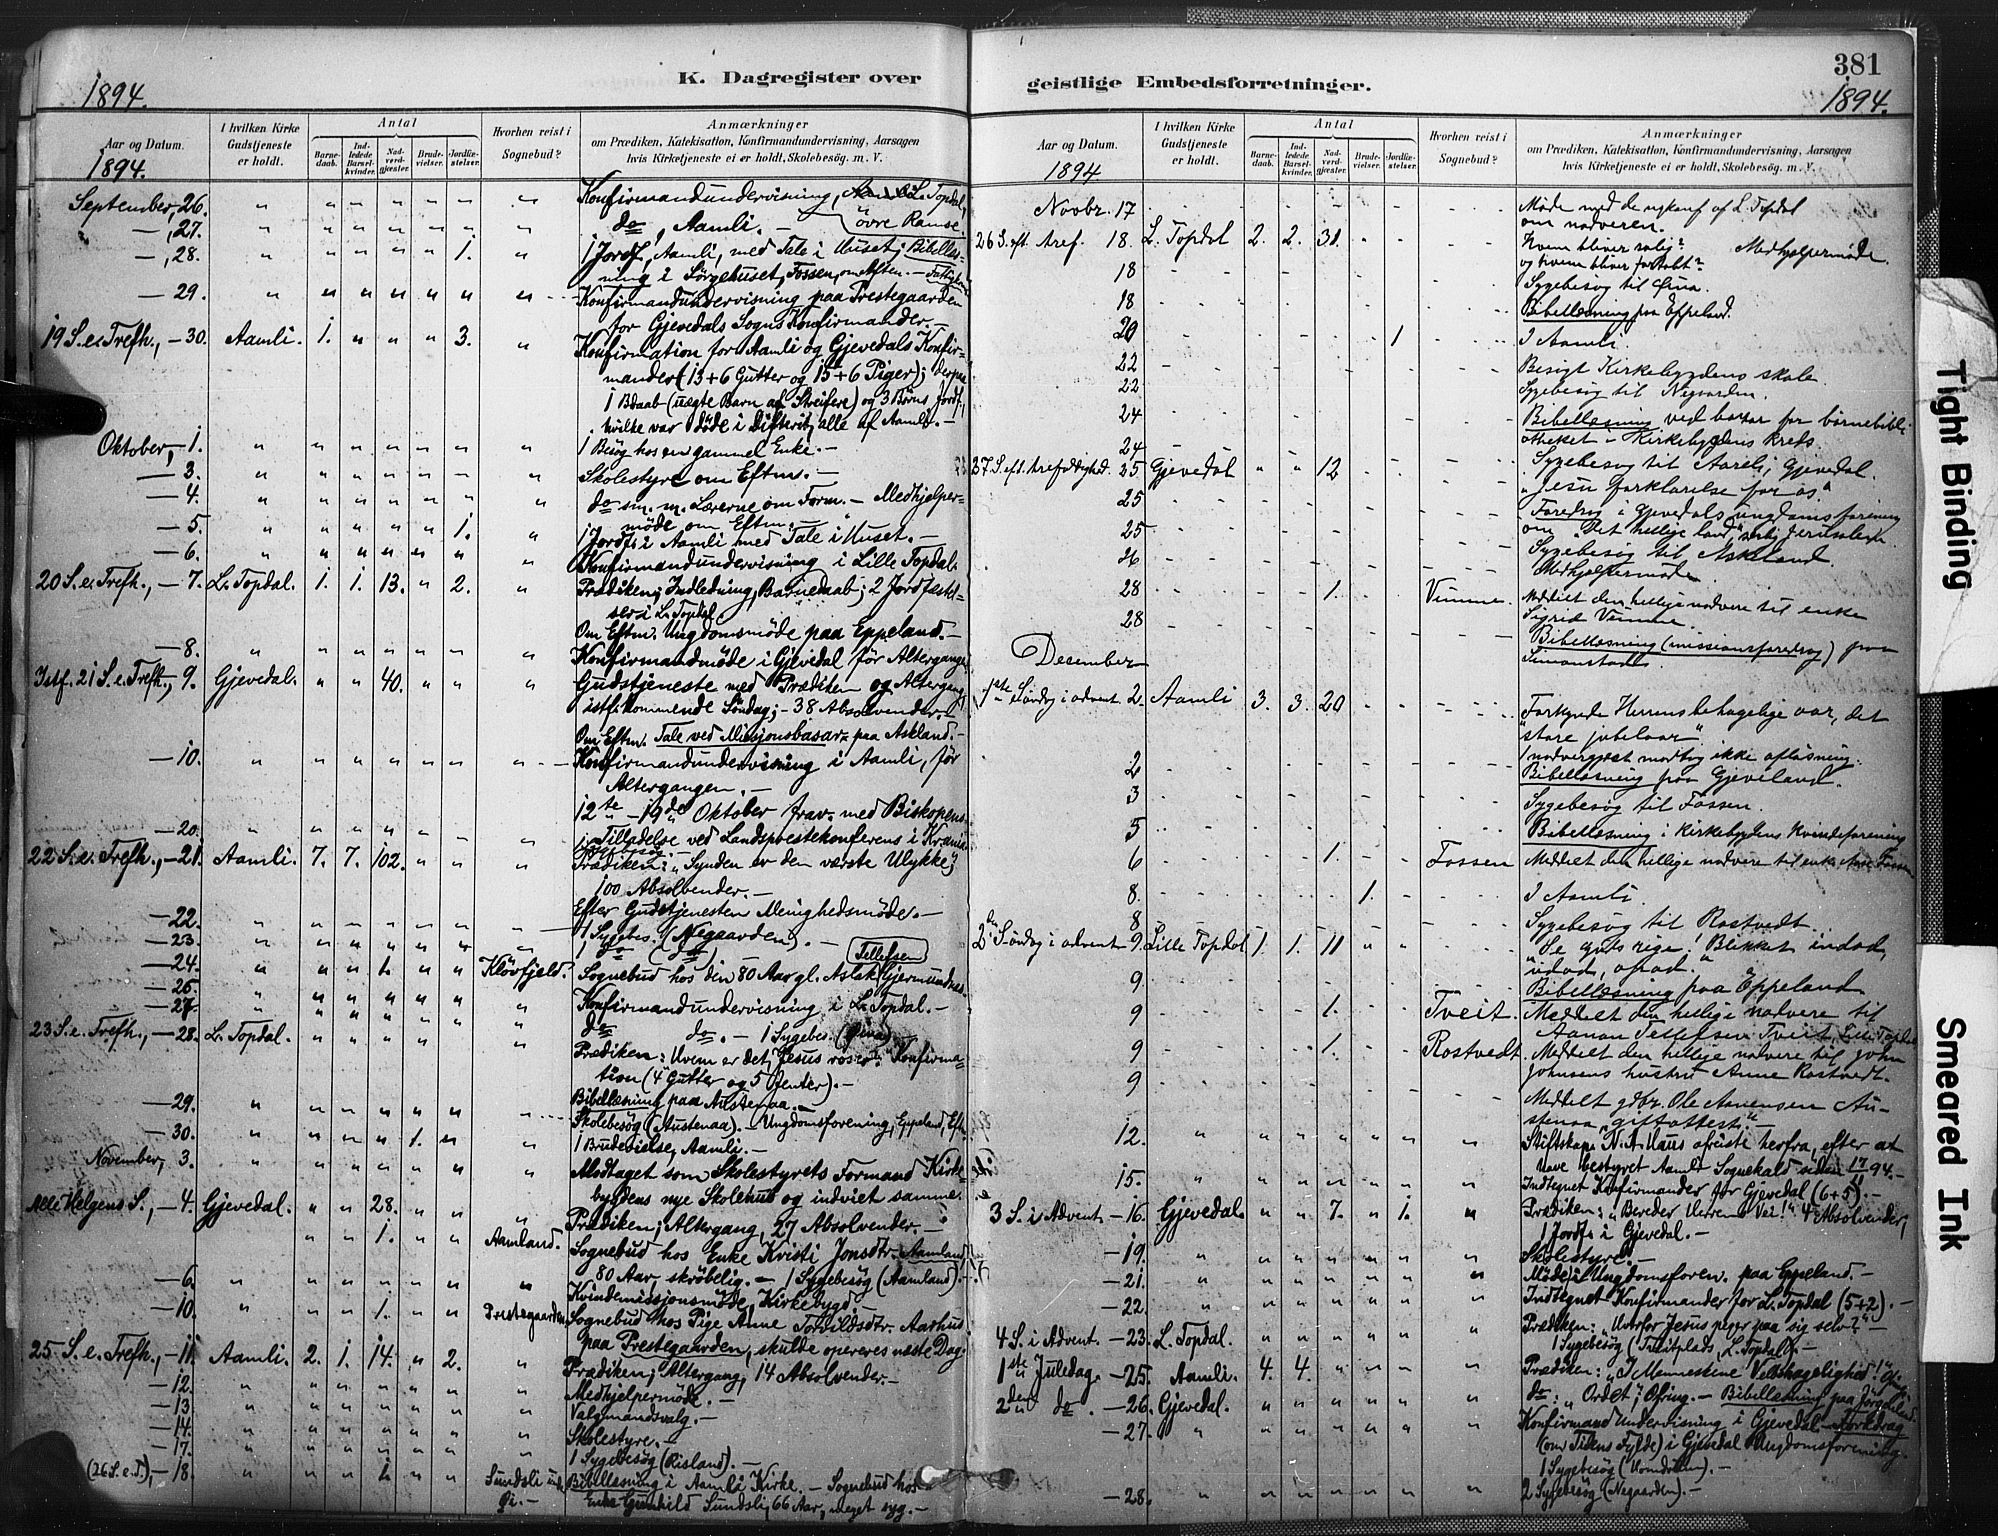 381
K. Dagregister over
geistlige Embedsforretninger.
1894.
1894.
Aar og Datum.
I hvilken Kirke Gudstjeneste er holdt.
Antal
Barnedaab.
Indledede Barselkvinder.
Nadverdgjæster.
Brudevielser.
Jordfæstelser.
Hvorhen reist i Sognebud?
Anmærkninger
om Prædiken, Katekisation, Konfirmandundervisning, Aarsagen
hvis Kirketjeneste ei er holdt, Skolebesög. m. V.
1894.
September, 26. " " " " " " " Konfirmandundervisning, L. Topdal,
—, 27. " " " " " " " do, Aamli. — övre Ramse.
—, 28. " " " " " 1. " 1 Jordf., Aamli, med Tale i Huset; Bibellæs-
ning i Sörgehuset, Fossen, om Aften. —
— 29. " " " " " " " Konfirmandundervisning paa Prestegaarden
for Gjevedals Sogns Konfirmander. —
19 S. e. Trefh., — 30. Aamli. 1. " " " 3. " Konfirmation for Aamli og Gjevedals Konfir-
mander (13+6 Gutter og 15+6 Piger); derpaa
1 Bdaab (uægte Barn af Streifere) og 3 Börns Jordf.,
hvilke var döde i Difterit, alle af Aamli. —
Oktober, — 1. " " " " " " " 1 Besög hos en gammel Enke. —
— 3. " " " " " " " Skolestyre om Eftm. —
— 4. " " " " " " " do sm. m. Lærerne om Form. — Medhjelper-
möde om Eftm. —
— 5. " " " " " 1. " 1 Jordf. i Aamli med Tale i Huset. —
— 6. " " " " " " " Konfirmandundervisning i Lille Topdal.
20 S. e. Trefh., — 7. L. Topdal. 1. 1. 13. " 2. " Prædiken; Indledning, Barnedaab; 2 Jordfæstel-
ser i L. Topdal
Om Eftm. Ungdomsmöde paa Eppeland. —
— 8. " " " " " " " Konfirmandmöde i Gjevedal för Altergang.
Istf. 21 S. e. Trefh., 9. Gjevedal. " " 40. " " " Gudstjeneste med Prædiken og Altergang,
istf. kommende Söndag; — 38 Absolvender. —
Om Eftm. Tale ved Missjonsbasar paa Askland. —
— 10. " " " " " " " Konfirmandundervisning i Aamli, för
Altergangen. —
12te — 19de Oktober frav. med Biskopens
— 20. " " " " " " Tilladelse ved Landsprestekonferens i Krania
22 S. e. Trefh., — 21. Aamli. 7. 7. 102. " " " Prædiken: "Synden er den værste Ulykke";
100 Absolvender. —
Efter Gudstjenesten Menighedsmöde. —
— 22. " " " " " " " 1 Sygebes. (Negaarden). —
— 23. " " " " " " " 1 do (do) —
Tellefsen
— 24. " " " 1. " " Klövfjeld. Sognebud hos den 80 Aar gl. Aslak Gjermundsen
— 25 " " " " " " " Konfirmandundervisning i L. Topdal. —
— 27. " " " " " " " do do. — 1 Sygebes.
23 S. e. Trefh., — 28. L. Topdal. " " " " " " Prædiken: Hvem er det, Jesus roser? Konfirma-
tion (4 Gutter og 5 Jenter). —
Bibellæsning paa Austenaa. —
— 29. " " " " " " Skolebesög (Austenaa). — Ungdomsforening, Eppeland, Eft.
— 30. " " " " 1. " " 1 Brudevielse, Aamli. —
November, 3. " " " " " " " Modtaget som Skolestyrets Formand Kirke-
bygdens nye Skolehus og indviet samme.
Alle Helgens S., — 4. Gjevedal. " " 28. " " " Prædiken; Altergang, 27 Absolvender. —
" " 1. " " Aamland. Sognebud hos Enke Kristi Jonsdtr. Aamland,
80 Aar, skröbelig. — 1 Sygebesög (Aamland). —
— 6. " " " " " " " Kvindemissjonsmöde, Kirkebygd. —
— 10. " " " 1. " " Prestegaarden. Sognebud hos Pige Anne Torvildsdtr. Aarhus
paa Prestegaarden, skulde opereres næste Dag.
25 S. e. Trefh., — 11. Aamli. 2. 1. 14. " 2. " Prædiken; Altergang, 14 Absolvender. —
— 12. " " " " " " " Medhjelpermöde. —
— 13. " " " " " " " Valgmandsvalg. —
— 14. " " " " " " " Skolestyre. —
— 17. " " " " " " " 1 Sygebesög (Risland). —
(26 S. e. T.), — 18. " " " 1. " " Sundsli Bibellæsning i Aamli Kirke. — Sognebud hos
Enke Gunhild Sundsli, 66 Aar, meget syg. —
1894.
Aar og Datum.
I hvilken Kirke Gudstjeneste er holdt.
Antal
Barnedaab.
Indledede Barselkvinder.
Nadverdgjæster.
Brudevielser.
Jordfæstelser.
Hvorhen reist i Sognebud?
Anmærkninger
om Prædiken, Katekisation, Konfirmandundervisning, Aarsagen
hvis Kirketjeneste ei er holdt, Skolebesög. m. V.
1894
Novbr. 17 Møde med de nykonf. af L. Topdal
om nadveren.
26 S. eft. tref. 18. L. Topdal 2. 2. 31. Hvem bliver salig?
og hvem bliver fortabt? Medhjælpermøde.
18 Sygebesøg til Øina.
18 Bibellæsning paa Eppeland.
20 1 I Aamli.
22 Besøgt Kirkebygdens skole
22 Sygebesøg til Negaarden.
24 Bibellæsning ved basar for børnebibli-
otheket i Kirkebygdens Kreds.
24 Sygebesøg til Aareli, Gjevedal.
27 S. eft. trefoldighed. 25 Gjevedal " " 12 "Jesu forklarelse for os."
25 Foredrag i Gjevedals ungdomsforening
om "Det hellige land", særlig Jerusalem.
25 Sygebesøg til Askeland.
26 Medhjælpermøde
28 1. Vimme. Meddelt den hellige nadvere til enke
Sigrid Vimme.
28 Bibellæsning (missionsforedrag) paa
Simonstad.
December
1ste Søndag i advent 2. Aamli 3. 3. 20 "Forkynde Herrens behagelige aar, det
store jubelaar".
1 nadvergjæst modtog ikke afløsning.
2 Bibellæsning paa Gjeviland.
3 Sygebesøg til Fossen.
5 Bibellæsning i Kirkebygdens Kvindeforening
6 1. Fossen Meddelt den hellige nadvere til enke Fossen
8. 1. I Aamli.
8 Sygebesøg til Rostvedt.
2den Søndag i advent 9. Lille Topdal 1. 1. 11 " " "Se guds rige! Blikket indad,
udad, opad."
9 Bibellæsning paa Eppeland
9 1. Tveit. Meddelt den hellige nadvere til
Aanon Tellefsen Tveit, Lille Topdal
9 1. Rostvedt Meddelt den hellige nadvere til John
Johnsens hustru Anne Rostvedt.
9 Meddelt gdbr. Ole Aanensen Au-
stenaa "giftattest". —
12. " " " " " " " Stiftskap. N. A. Haus afreiste herfra, efter at
have bestyret Aamli Sognekald siden 94. —
15. " " " " " " " Indtegnet Konfirmander for Gjevedal (6+5). —
3 S. i Advent — 16. Gjevedal. " " 7. " 1. " Prædiken: "Bereder Herrens Vei!" 4 Absolvender,
1 Jordf. i Gjevedal. —
— 19. " " " " " " " Skolestyre. —
— 21. " " " " " " " Möde i Ungdomsforen. paa Eppeland. —
— 22. " " " " " " " Indtegnet Konfirmander for L. Topdal (5+2). —
4 S. i Advent. — 23. L. Topdal. " " " " " " Prædiken: "Hvorfor Jesus peger paa sig selv?"
1 Sygebesög (Tveitplads, L. Topdal). —
1ste Juledag. — 25. Aamli. 4. 4. " " " " Prædiken: "I Menneskene Velbehagelighed!"
2den do. — 26. Gjevedal. " " " " " " do: "Ordet"; Ofring. — Bibellæsning paa
— 27. " " " " " " " Konfirmandundervisning i Gjevedal Foredrag
(om Tidens Fylde) i Gjevedal Ungdomsforening.
1 Sygebesög —
— 28. " " " " " " " 2 Sygebesög (Negaarden). —
Tight Binding
Smeared Ink